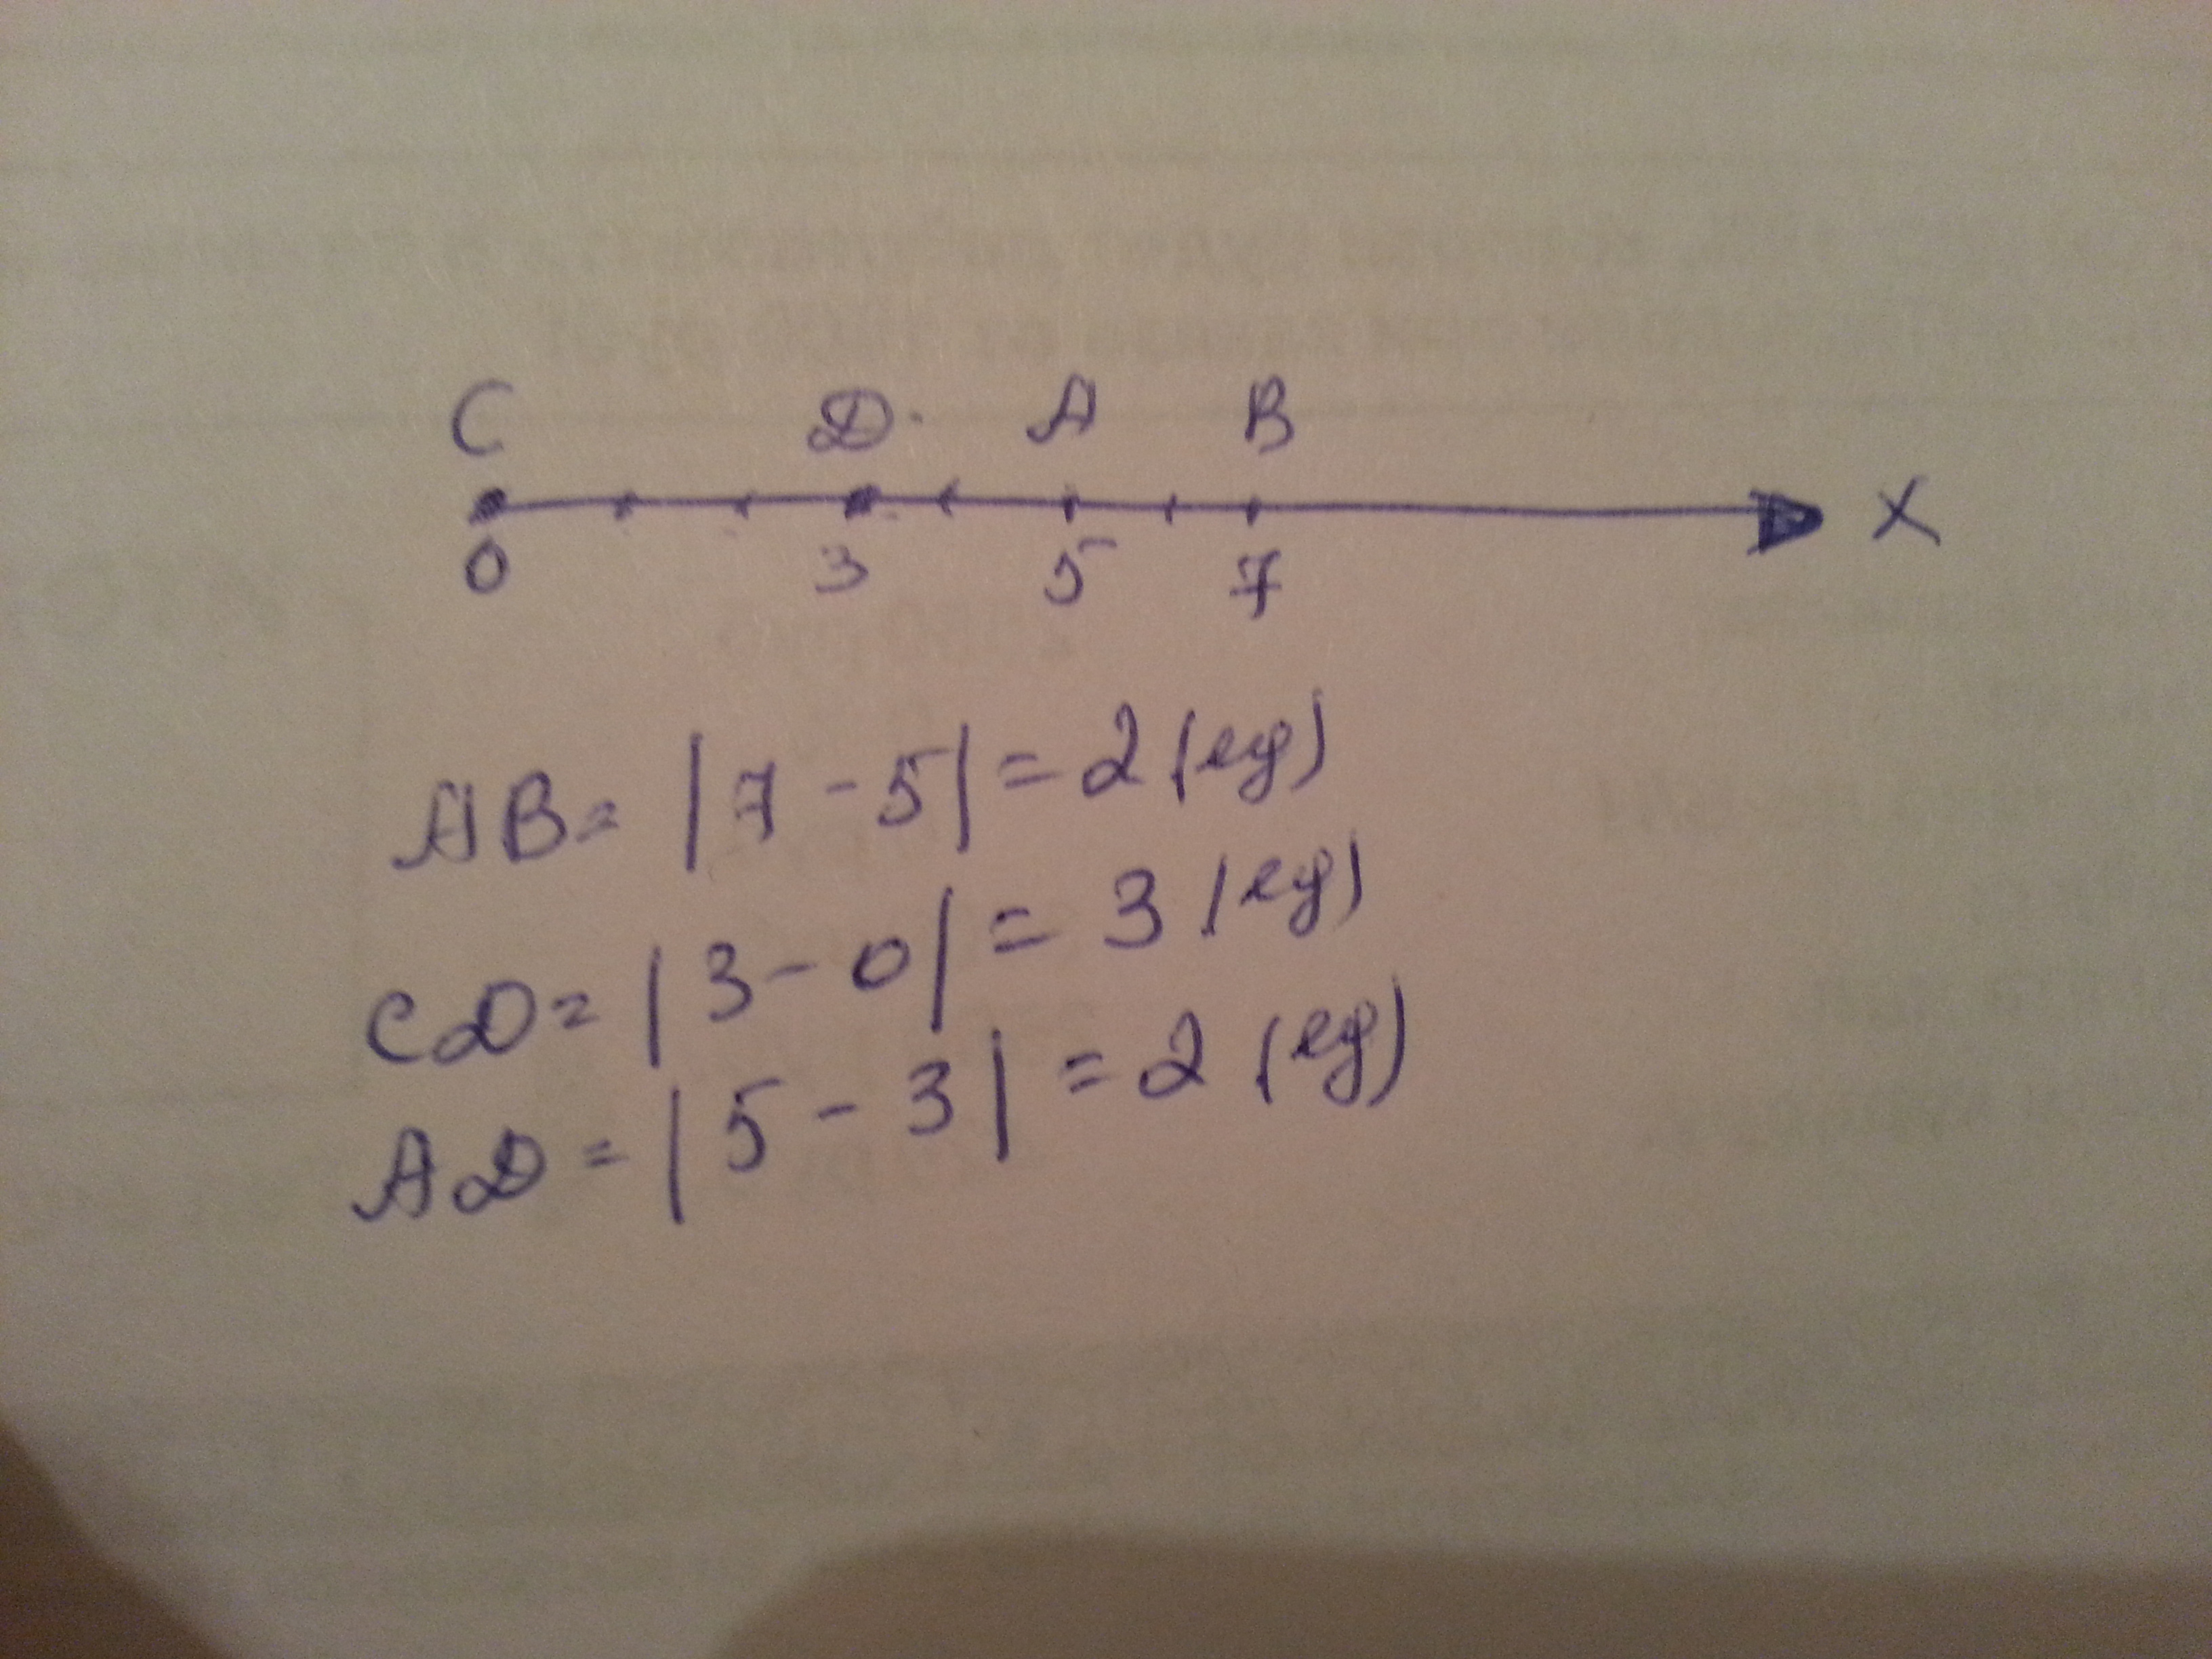 C D A B
X
0 3 5 7
AB = |7 - 5| = 2 (ед)
CD = |3 - 0| = 3 (ед)
AD = |5 - 3| = 2 (ед)